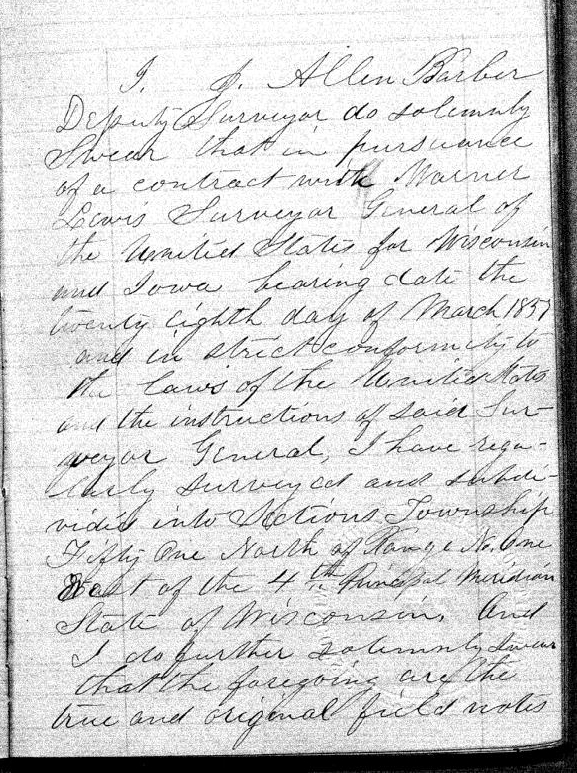 I. J. Allen Barber
Deputy Surveyor do solemnly
Swear that in pursuance
of a contract with Warner
Lewis Surveyor General of
the United States for Wisconsin
and Iowa bearing date the
twenty eighth day of March 1857
and in strict conformity to
the laws of the United States
and the instructions of said Sur-
veyor General, I have regu-
larly surveyed and subdi-
vided into Sections Township
Fifty One North of Range No. One
East of the 4th Principal Meridian
State of Wisconsin. And
I do further solemnly swear
that the foregoing are the
true and original field notes